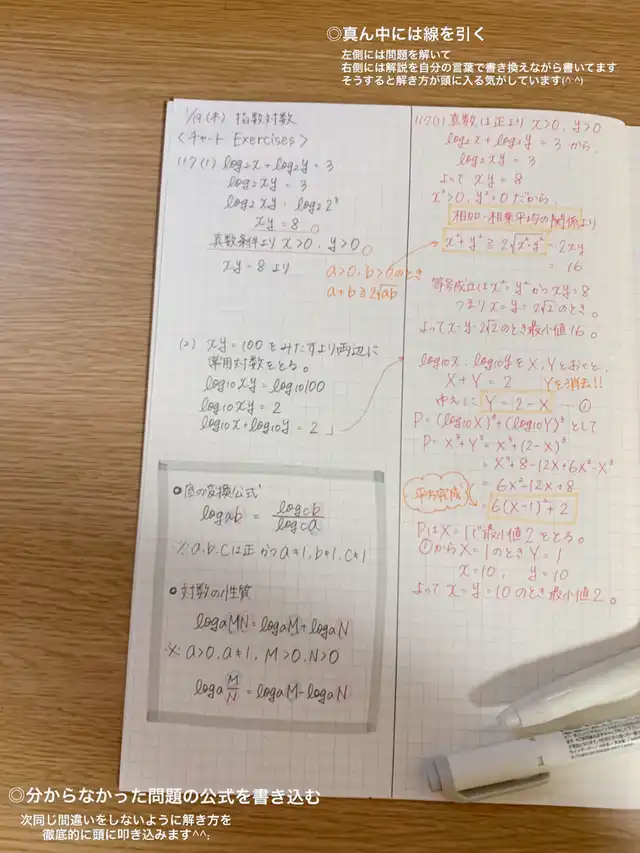 ◎真ん中には線を引く
左側には問題を解いて
右側には解説を自分の言葉で書き換えながら書いてます
そうすると解き方が頭に入る気がしています(^^)
1/19(木) 指数対数
<チャート Exercises>
117(1) log₂x-log₂y=3
log₂xy=3
log₂xy=log₂2³
xy=8
真数条件より x>0, y>0
xy=8より
a>0, b>0のとき
a+b≧2√ab
(2) xy=100をみたすより両辺に
常用対数をとる。
log₁₀xy=log₁₀100
log₁₀xy=2
log₁₀x+log₁₀y=2
底の変換公式
logab = logcb/logca
※a,b,cは正かつa≠1, b≠1, c≠1
対数の性質
logaMN=logaM+logaN
※a>0, a≠1, M>0, N>0
loga M/N=logaM-logaN
117(1) 真数は正より x>0, y>0
log₂x+log₂y=3から、
log₂xy=3
よって xy=8
x²>0, y²>0だから、
相加・相乗平均の関係より
x²+y²≧2√x²・y²=2xy
=16
等号成立はx²=y²かつxy=8
つまりx=y=2√2のとき。
よってx=y=2√2のとき最小値16。
log₁₀x, log₁₀yをX, Yとおくと、
X+Y=2 Yを消去!!
ゆえに Y=2-X ①
P=(log₁₀x)³+(log₁₀y)³として
P=X³+Y³=X³+(2-X)³
=X³+8-12X+6X²-X³
=6X²-12X+8
平方完成 =6(X-1)²+2
PはX=1で最小値2をとる。
①からX=1のときY=1
x=10, y=10
よってx=y=10のとき最小値2。
◎分からなかった問題の公式を書き込む
次同じ間違いをしないように解き方を
徹底的に頭に叩き込みます^^;